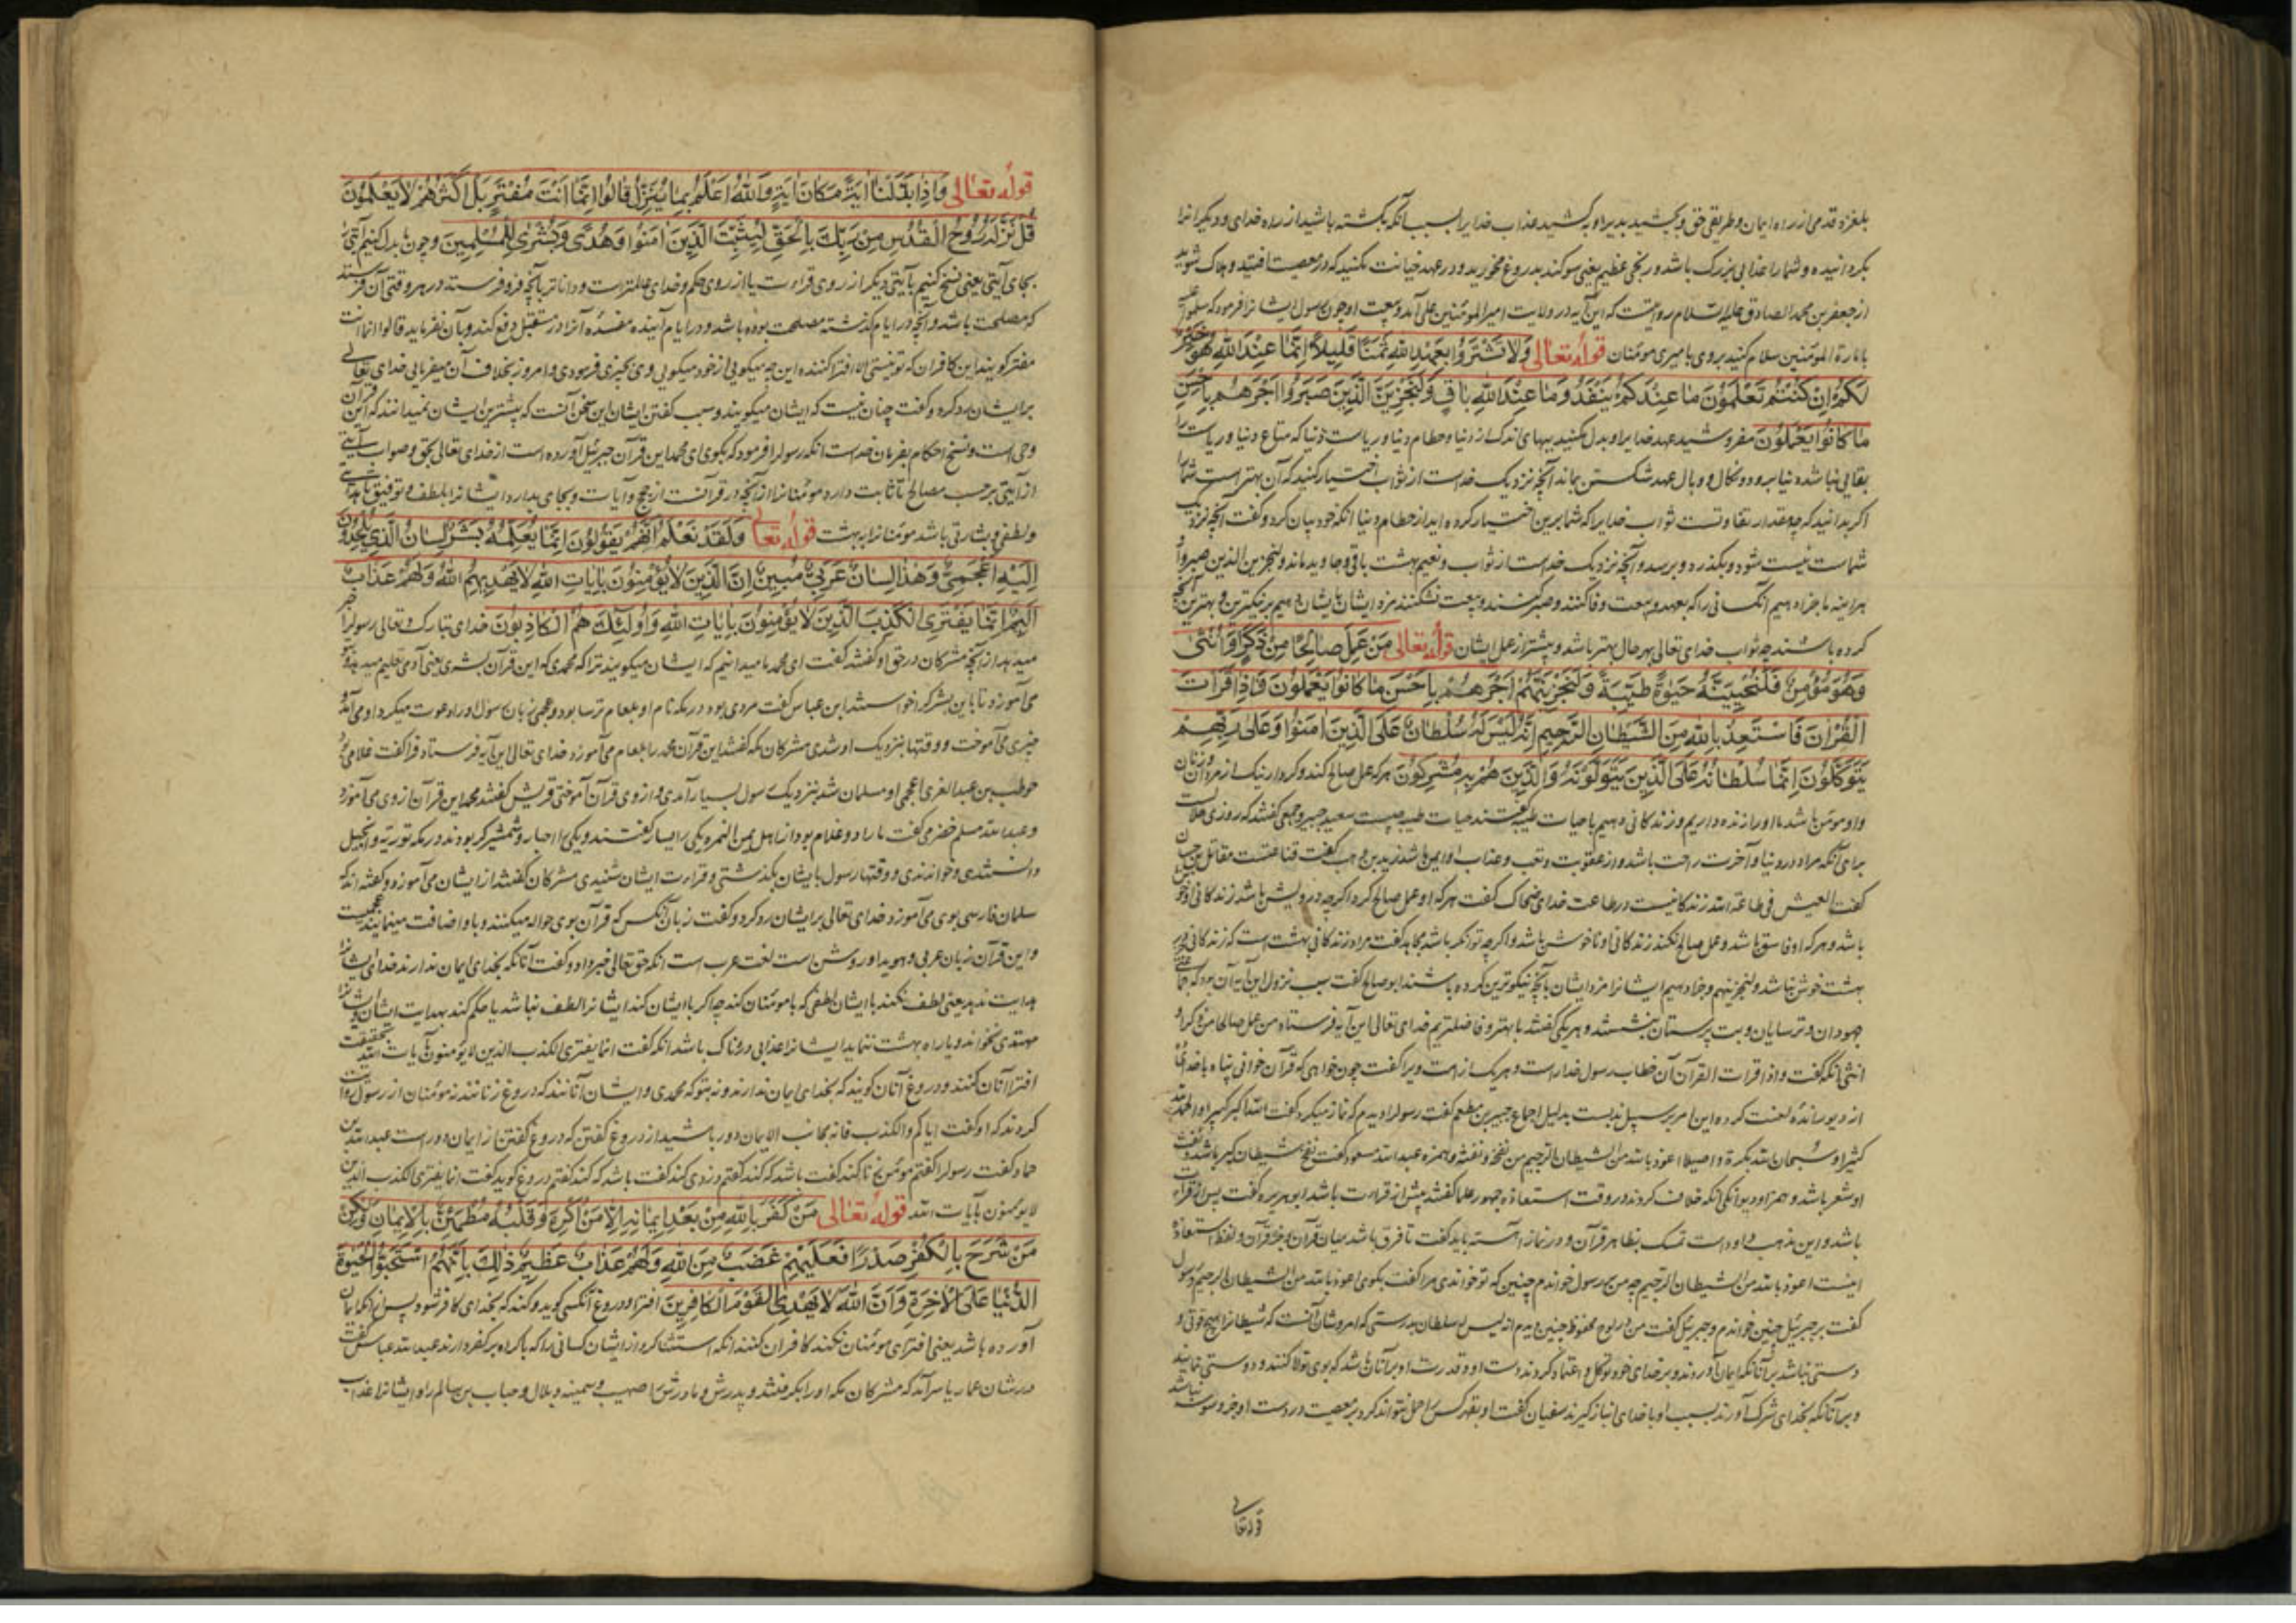 بلغزد قدمی از راه ایمان و طریق حق و بچشید بدیرا و بکشید عذاب خدایرا بسبب آنکه بگشته باشید از راه خدای و دیگرانرا
بگردانیده و شما را عذابی بزرگ باشد و رنجی عظیم یعنی سوگند بدروغ مخورید و در عهد خیانت مکنید که در معصیت افتید و هلاک شوید
از جعفر بن محمد الصادق علیه السلام روایتست که این آیه در ولایت امیرالمؤمنین علی آمد و بیعت او چون رسول ایشانرا فرمود که سلموا علیه
بامارة المؤمنین سلام کنید بروی بامیری مؤمنان قوله تعالی وَلَا تَشْتَرُوا بِعَهْدِ اللَّهِ ثَمَنًا قَلِيلًا إِنَّمَا عِنْدَ اللَّهِ هُوَ خَيْرٌ
لَكُمْ إِنْ كُنْتُمْ تَعْلَمُونَ مَا عِنْدَكُمْ يَنْفَدُ وَمَا عِنْدَ اللَّهِ بَاقٍ وَلَنَجْزِيَنَّ الَّذِينَ صَبَرُوا أَجْرَهُمْ بِأَحْسَنِ
مَا كَانُوا يَعْمَلُونَ مفروشید عهد خدایرا و بدل مکنید ببهای اندک از دنیا و حطام دنیا و ریاست دنیا که متاع دنیا و ریاست را
بقایی نباشد دنیا برود و نکال و وبال عهد شکستن بماند آنچه نزدیک خداست از ثواب اختیار کنید که آن بهتر است شما را
اگر بدانید که چه مقدار تفاوتست ثواب خدایرا که شما برین اختیار کرده اید از حطام دنیا آنکه خود بیان کرد و گفت آنچه نزدیک
شماست نیست شود و بگذرد و برسد و آنچه نزدیک خداست از ثواب و نعیم بهشت باقی و جاوید ماند و لنجزین الذین صبروا
هر اینه ما جزا دهیم آنکسانی را که بعهد و بیعت وفا کنند و صبر کنند و بیعت نشکنند مزد ایشان بایشان دهیم بر نیکترین و بهترین آنچه
کرده باشند چه ثواب خدای تعالی بهر حال بهتر باشد و بیشتر از عمل ایشان قوله تعالی مَنْ عَمِلَ صَالِحًا مِنْ ذَكَرٍ أَوْ أُنْثَى
وَهُوَ مُؤْمِنٌ فَلَنُحْيِيَنَّهُ حَيٰوةً طَيِّبَةً وَلَنَجْزِيَنَّهُمْ أَجْرَهُمْ بِأَحْسَنِ مَا كَانُوا يَعْمَلُونَ فَإِذَا قَرَأْتَ
الْقُرْآنَ فَاسْتَعِذْ بِاللَّهِ مِنَ الشَّيْطَانِ الرَّجِيمِ إِنَّهُ لَيْسَ لَهُ سُلْطَانٌ عَلَى الَّذِينَ آمَنُوا وَعَلَى رَبِّهِمْ
يَتَوَكَّلُونَ إِنَّمَا سُلْطَانُهُ عَلَى الَّذِينَ يَتَوَلَّوْنَهُ وَالَّذِينَ هُمْ بِهِ مُشْرِكُونَ هر که عمل صالح کند و کردار نیک از مردان و زنان
و او مؤمن باشد ما او را زنده داریم و زندگانی دهیم با حیات طیبه گفتند حیات طیبه چیست سعید جبیر و جمعی گفتند که روزی حلالست
برای آنکه مراد در دنیا و آخرت راحت باشد و از عقوبت و تعب و عذاب او ایمن باشد زید بن وهب گفت قناعتست مقاتل بن حیان
گفت العیش فی طاعة الله زندگانیست در طاعت خدای ضحاک گفت هر که او عمل صالح کرد اگر چه درویش باشد زندگانی او خوش
باشد و هر که او فاسق باشد و عمل صالح نکند زندگانی او ناخوش باشد و اگر چه توانگر باشد مجاهد گفت مراد زندگانی بهشت است که زندگانی جز در
بهشت خوش نباشد و لنجزینهم و جزا دهیم ایشانرا مزد ایشان بآنچه نیکوترین کرده باشند ابو صالح گفت سبب نزول این آیه آن بود که جماعتی
جهودان و ترسایان و بت پرستان بنشستند و هر یکی گفتند ما بهتر و فاضلتریم خدای تعالی این آیه فرستاد من عمل صالحا من ذکر او
انثی آنکه گفت و اذا قرات القرآن آن خطاب رسول خداراست و هر یک از امت ویرا گفت چون خواهی که قرآن خوانی پناه با خدای
از دیو رانده لعنت کرده این امر بر سبیل ندبست بدلیل اجماع جبیر بن مطعم گفت رسولرا دیدم که نماز میکرد گفت الله اکبر کبیرا و الحمد لله
کثیرا و سبحان الله بکرة و اصیلا اعوذ بالله من الشیطان الرجیم من نفخه و نفثه و همزه عبدالله مسعود گفت نفخ شیطان کبر باشد و نفث
او شعر باشد و همز او دیوانگی آنکه خلاف کردند در وقت استعاذه جمهور علما گفتند پیش از قراءت باشد ابو هریره گفت پس از قراءت
باشد و این مذهب داود است تمسک بظاهر قرآن و در نماز آهسته باید گفت تا فرق باشد میان قرآن و جز قرآن و لفظ استعاذه
اینست اعوذ بالله من الشیطان الرجیم چه من بر رسول خواندم چنین که تو خواندی مرا گفت بگوی اعوذ بالله من الشیطان الرجیم که رسول
گفت بر جبرئیل چنین خواندم و جبرئیل گفت من در لوح محفوظ چنین دیدم انه لیس له سلطان بدرستی که امر و شان آنست که شیطانرا هیچ قوتی و
دستی نباشد بر آنانکه ایمان آوردند و بر خدای خود توکل و اعتماد کردند دست او و قدرت او بر آنان باشد که بوی تولا کنند و دوستی نمایند
و بر آنانکه بخدای شرک آورند بسبب او با خدای انباز گیرند سفیان گفت او بقهر کس را حمل نتواند کرد بر معصیت و در دست او جز وسوسه نباشد
قوله تعالی
قوله تعالی وَإِذَا بَدَّلْنَا آيَةً مَكَانَ آيَةٍ وَاللَّهُ أَعْلَمُ بِمَا يُنَزِّلُ قَالُوا إِنَّمَا أَنْتَ مُفْتَرٍ بَلْ أَكْثَرُهُمْ لَا يَعْلَمُونَ
قُلْ نَزَّلَهُ رُوحُ الْقُدُسِ مِنْ رَبِّكَ بِالْحَقِّ لِيُثَبِّتَ الَّذِينَ آمَنُوا وَهُدًى وَبُشْرَى لِلْمُسْلِمِينَ و چون بدل کنیم آیتی را
بجای آیتی یعنی نسخ کنیم بآیتی دیگر از روی قراءت یا از روی حکم و خدای عالمتر است و داناتر بآنچه فرو فرستد در هر وقتی آن فرستد
که مصلحت باشد و آنچه در ایام گذشته مصلحت بوده باشد و در ایام آینده مفسده آنرا در مستقبل دفع کند و بآن نفرماید قالوا انما انت
مفتر گویند این کافران که تو نیستی الا افترا کننده این چه میگویی از خود میگویی و دی بچیزی فرمودی و امروز بخلاف آن میفرمایی خدای تعالی
بر ایشان رد کرد و گفت چنان نیست که ایشان میگویند و سبب گفتن ایشان این سخن آنست که بیشترین ایشان نمیدانند که این قرآن
وحی است و نسخ احکام بفرمان خداست آنکه رسولرا فرمود که بگوی ای محمد این قرآن جبرئیل آورده است از خدای تعالی بحق و صواب آیتی
از آیتی بر حسب مصالح تا ثابت دارد مؤمنانرا از آنچه در قرآنست از حجج و آیات و بجای بدارد ایشانرا بلطف و توفیق تا هدایتی
و لطفی و بشارتی باشد مؤمنانرا ببهشت قوله تعالی وَلَقَدْ نَعْلَمُ أَنَّهُمْ يَقُولُونَ إِنَّمَا يُعَلِّمُهُ بَشَرٌ لِسَانُ الَّذِي يُلْحِدُونَ
إِلَيْهِ أَعْجَمِيٌّ وَهَذَا لِسَانٌ عَرَبِيٌّ مُبِينٌ إِنَّ الَّذِينَ لَا يُؤْمِنُونَ بِآيَاتِ اللَّهِ لَا يَهْدِيهِمُ اللَّهُ وَلَهُمْ عَذَابٌ
أَلِيمٌ إِنَّمَا يَفْتَرِي الْكَذِبَ الَّذِينَ لَا يُؤْمِنُونَ بِآيَاتِ اللَّهِ وَأُولَئِكَ هُمُ الْكَاذِبُونَ خدای تبارک و تعالی رسولرا خبر
میدهد از آنچه مشرکان در حق او گفتند گفت ای محمد ما میدانیم که ایشان میگویند ترا که محمدی که این قرآن بشری یعنی آدمی تعلیم میدهد و
می آموزد تا باین بشر کرا خواستند ابن عباس گفت مردی بود در مکه نام او بلعام ترسا بود و عجمی زبان رسول او را دعوت میکرد و می آمد و
چیزی می آموخت و وقتها بنزدیک او شدی مشرکان مکه گفتند این قرآن محمد را بلعام می آموزد خدای تعالی این آیه فرستاد فرا گفت غلامی بود
حویطب بن عبدالعزی اعجمی او مسلمان شد بنزدیک رسول بسیار آمدی و از وی قرآن آموختی قریش گفتند محمد این قرآن از وی می آموزد
و عبدالله مسلم حضرمی گفت ما را دو غلام بود از اهل عین التمر یکی را یسار گفتندی و یکی را جبار و شمشیرگر بودند در مکه توریة و انجیل
دانستندی و خواندندی و وقتها رسول بایشان بگذشتی و قراءت ایشان شنیدی مشرکان گفتند از ایشان می آموزد و گفته اند که
سلمان فارسی بوی می آموزد خدای تعالی بر ایشان رد کرد و گفت زبان آنکس که قرآن بوی حواله میکنند و با او اضافت مینمایند عجمیست
و این قرآن زبان عربی و هویدا و روشن است لغت عرب است آنکه حق تعالی خبر داد و گفت آنانکه بخدای ایمان ندارند خدای ایشانرا
هدایت ندهد یعنی لطف نکند با ایشان لطفی که با مؤمنان کند چه اگر با ایشان کند ایشانرا لطف نباشد یا حکم نکند بهدایت ایشان و ایشانرا
مهتدی نخواند و یا راه بهشت ننماید ایشانرا عذابی دردناک باشد آنکه گفت انما یفتری الکذب الذین لا یؤمنون بآیات الله بحقیقت
افترا آنان کنند و دروغ آنان گویند که بخدای ایمان ندارند و نه بتو که محمدی و ایشان آنانند که دروغ زنانند نه مؤمنان از رسول روایت
کردند که او گفت ایاکم و الکذب فانه یجانب الایمان دور باشید از دروغ گفتن که دروغ گفتن از ایمان دور است عبدالله بن
حماد گفت رسولرا گفتم مؤمن زنا کند گفت باشد که کند گفتم دزدی کند گفت باشد که کند گفتم دروغ گوید گفت انما یفتری الکذب الذین
لا یؤمنون بآیات الله قوله تعالی مَنْ كَفَرَ بِاللَّهِ مِنْ بَعْدِ إِيمَانِهِ إِلَّا مَنْ أُكْرِهَ وَقَلْبُهُ مُطْمَئِنٌّ بِالْإِيمَانِ وَلَكِنْ
مَنْ شَرَحَ بِالْكُفْرِ صَدْرًا فَعَلَيْهِمْ غَضَبٌ مِنَ اللَّهِ وَلَهُمْ عَذَابٌ عَظِيمٌ ذَلِكَ بِأَنَّهُمُ اسْتَحَبُّوا الْحَيٰوةَ
الدُّنْيَا عَلَى الْآخِرَةِ وَأَنَّ اللَّهَ لَا يَهْدِي الْقَوْمَ الْكَافِرِينَ افترا و دروغ آنکسی گوید و کند که بخدای کافر شود پس از آنکه ایمان
آورده باشد یعنی افترای مؤمنان نکنند کافران کنند آنکه استثنا کرد از ایشان کسانی را که باکراه بر کفر دارند عبدالله عباس گفت
در شان عمار یاسر آمد که مشرکان مکه او را بگرفتند و پدرش و مادرش را صهیب و سمیه و بلال و خباب بن سالم را و ایشانرا عذاب